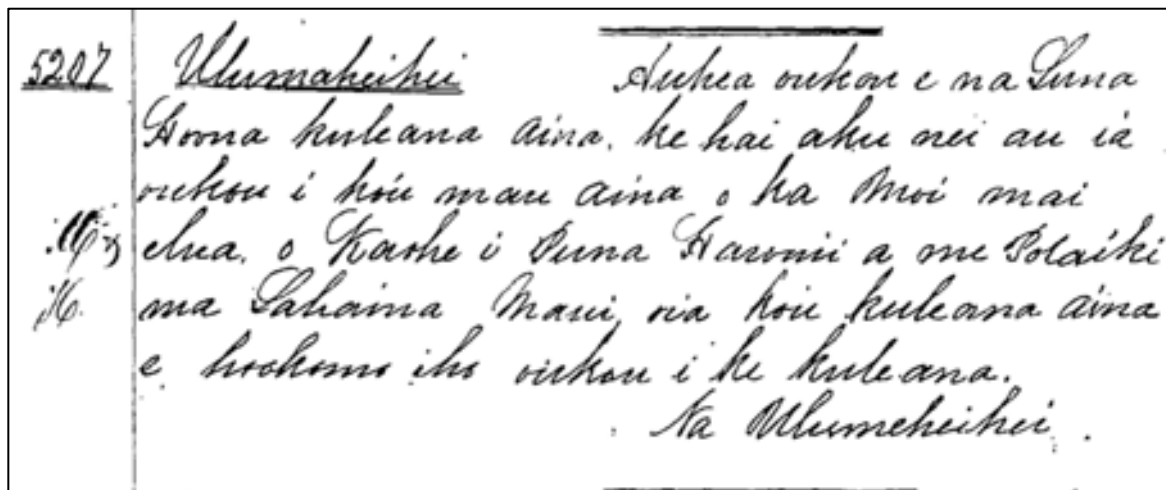 5207 Ulumaheihei Auhea oukou e na Luna
Hoona kuleana aina, ke hai aku nei au ia
oukou i ko'u mau aina o ka Moi mai
elua, o Kaohe i Puna Hawaii a me Polaiki
ma Lahaina Maui, oia ko'u kuleana aina
e hookomo iho oukou i ke kuleana.
Na Ulumeheihei.